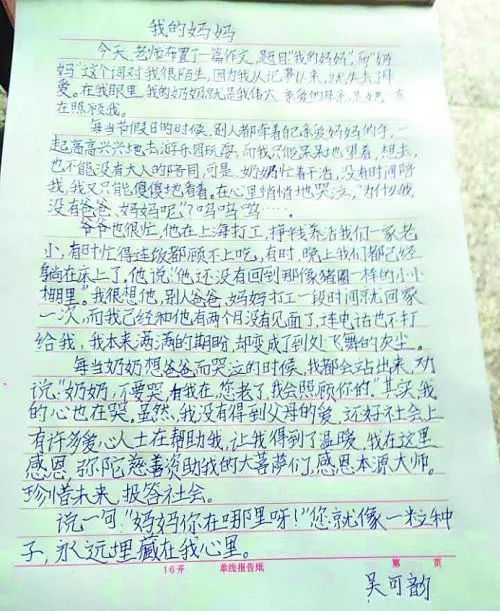 我的妈妈
今天,老师布置了一篇作文,题目"我的妈妈"而"妈
妈"这个词对我很陌生,因为我从记事以来,就失去了母
爱。在我眼里,我的奶奶就是我伟大、亲爱的母亲,是她一直
在照顾我。
每当节假日的时候,别人都牵着自己亲爱妈妈的手,一
起高高兴兴地去游乐园玩耍,而我只能呆呆地望着,想去,
也不能没有大人的陪同,可是,奶奶忙着干活,没有时间陪
我,我又只能傻傻地看着。在心里悄悄地哭泣,"为什么我
没有爸爸、妈妈呢"?呜呜呜……。
爷爷也很忙,他在上海打工,挣钱养活我们一家老
小,有时忙得连饭都顾不上吃,有时,晚上我们都已经
躺在床上了,他说:"他还没有回到那像猪圈一样的小小
棚里"。我很想他,别人爸爸、妈妈打工一段时间就回家
一次,而我已经和他有两个月没有见面了,连电话也不打
给我,我本来满满的期盼,却变成了到处飞舞的灰尘。
每当奶奶想爸爸而哭泣的时候,我都会站出来,劝
说:"奶奶,不要哭,有我在,您老了,我会照顾你的"其实,我
的心也在哭。虽然,我没有得到父母的爱,还好社会上
有许多爱心人士在帮助我,让我得到了温暖,我在这里
感恩,弥陀慈善资助我的大菩萨们,感恩本源大师。
珍惜未来,报答社会。
说一句:"妈妈你在哪里呀!"您就像一粒种
子,永远埋藏在我心里。
16开 单线报告纸 第 页
吴可韵